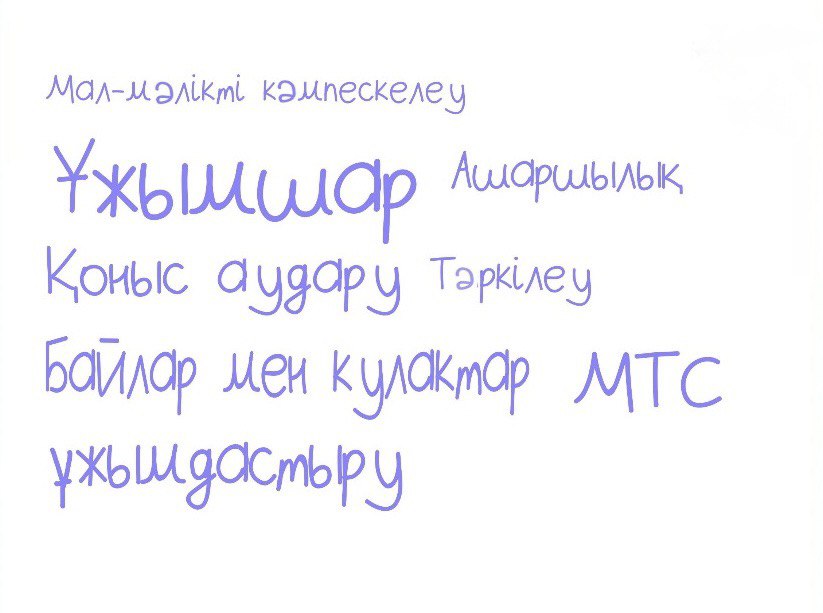 Мал-мәлікті кәмпескелеу
Ұжымшар Ашаршылық
Қоныс аудару Тәркілеу
Байлар мен кулактар МТС
ұжымдастыру